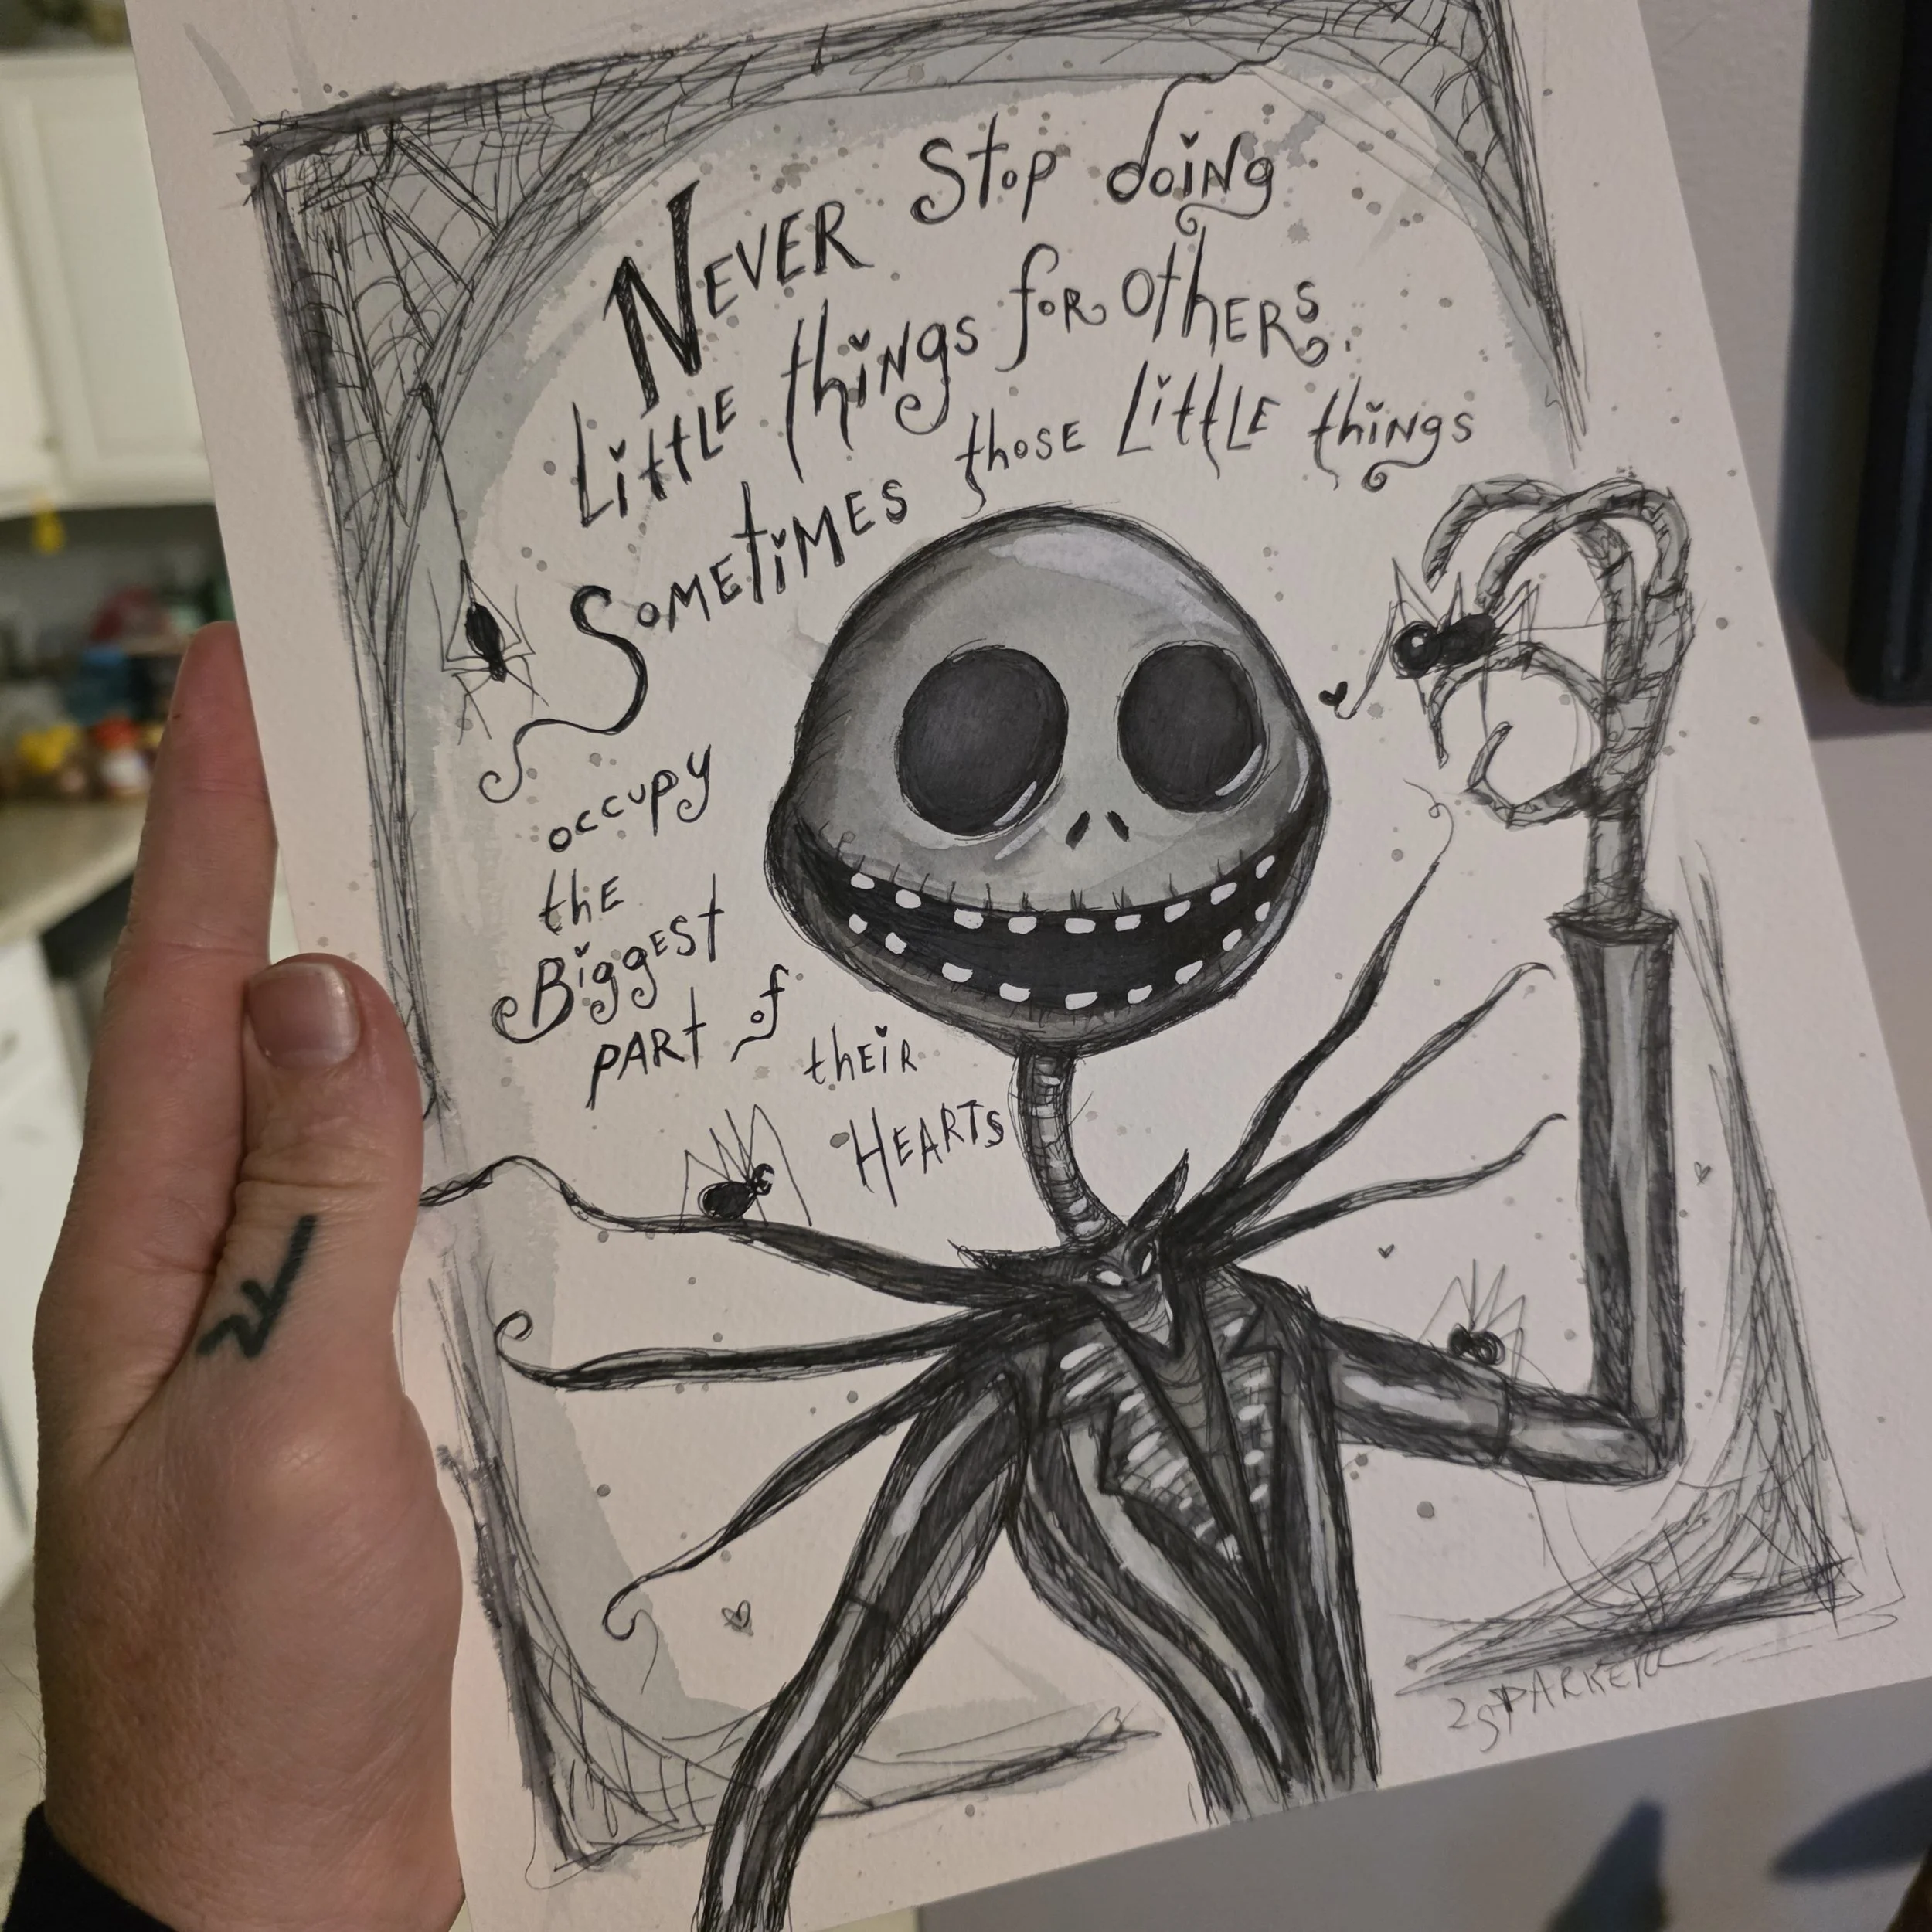 NEVER Stop doing
LittLE things for OthERs.
SOMEtiMES those LittLE things
occupy
thE
BiggEst
pARt of
thEiR
HEARTS